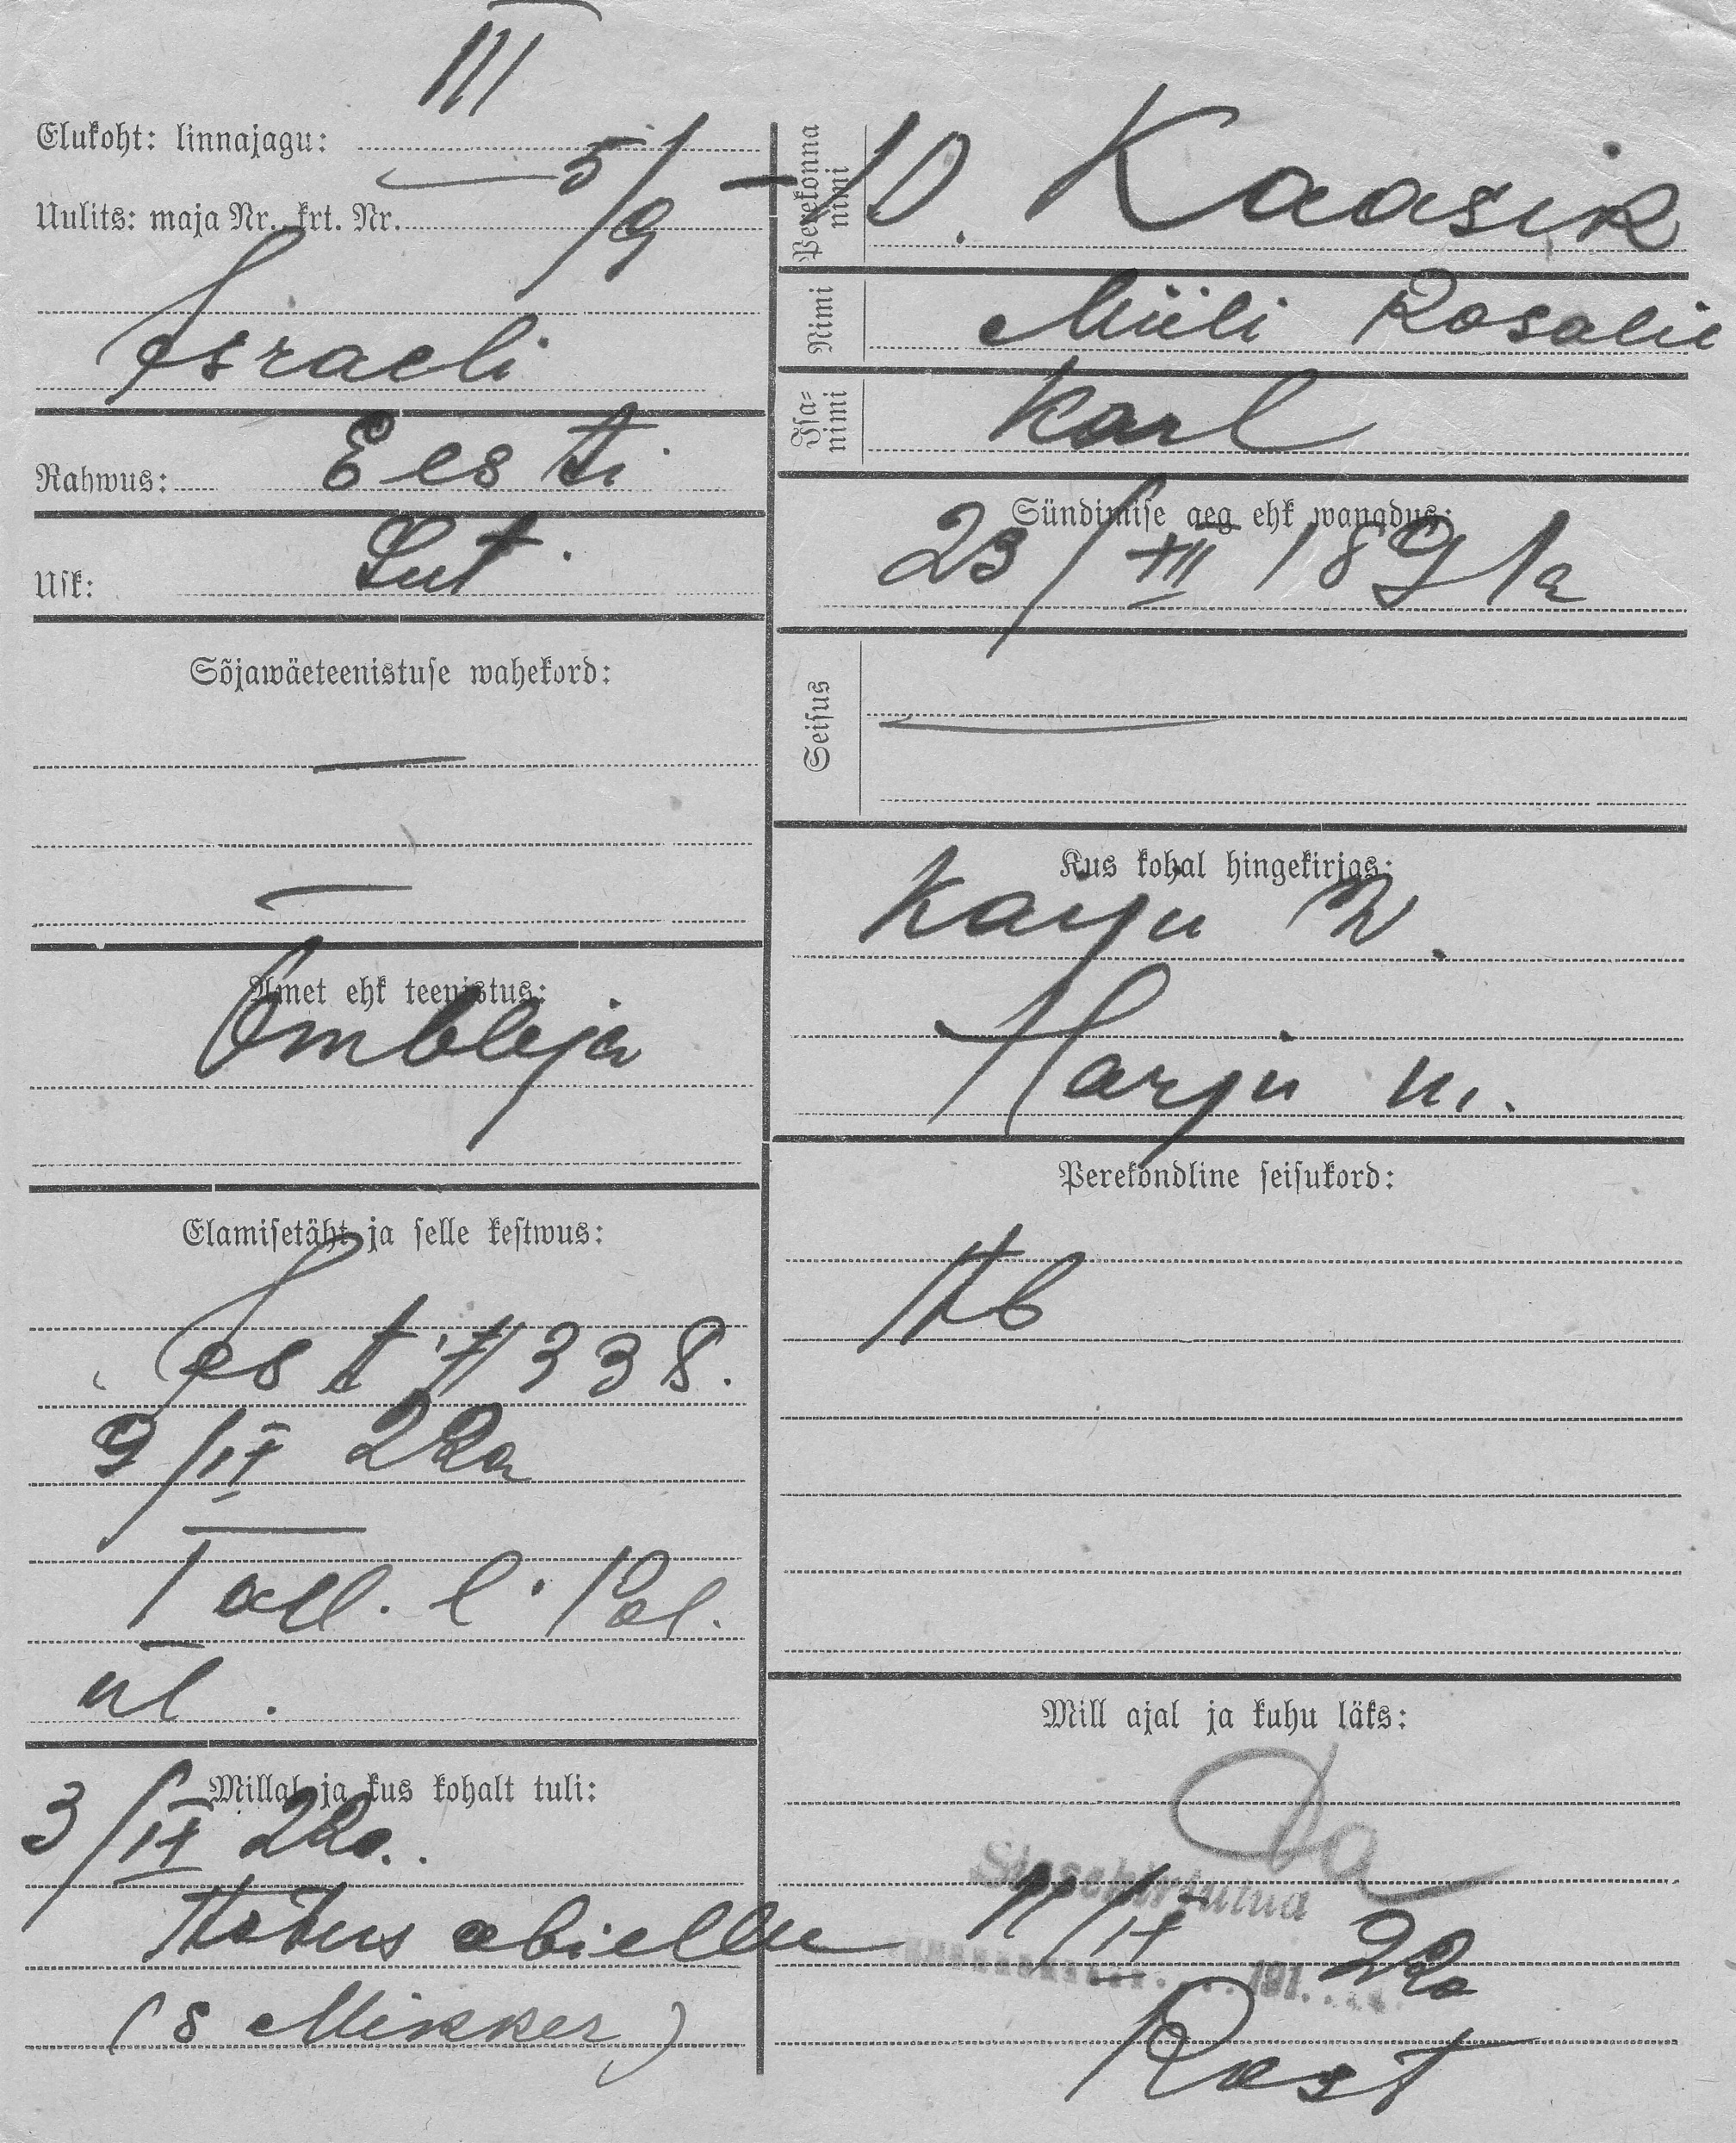 III
Elukoht: linnajagu:
Uulits: maja Nr. krt. Nr. 5/9 – 10.
Israeli
Rahwus: Eesti
Usk: Lut.
Sõjawäeteenistuse wahekord:
—
—
Amet ehk teenistus:
Õmbleja
Elamisetäht ja selle kestwus:
338.
9/IX 22a
Tall. l. Pol.
ül.
Millal ja kus kohalt tuli:
3/IX 22a.
Astus abiellu
(s Mikker)
Perekonna nimi Kaasik
Nimi Miili Rosalie
Isa-nimi Karl
Sündimise aeg ehk wanadus:
23/XII 1891a
Seisus
Kus kohal hingekirjas:
Harju m.
Perekondline seisukord:
Ab
Mill ajal ja kuhu läks:
Sissekirjutud
11/IX 22a
191